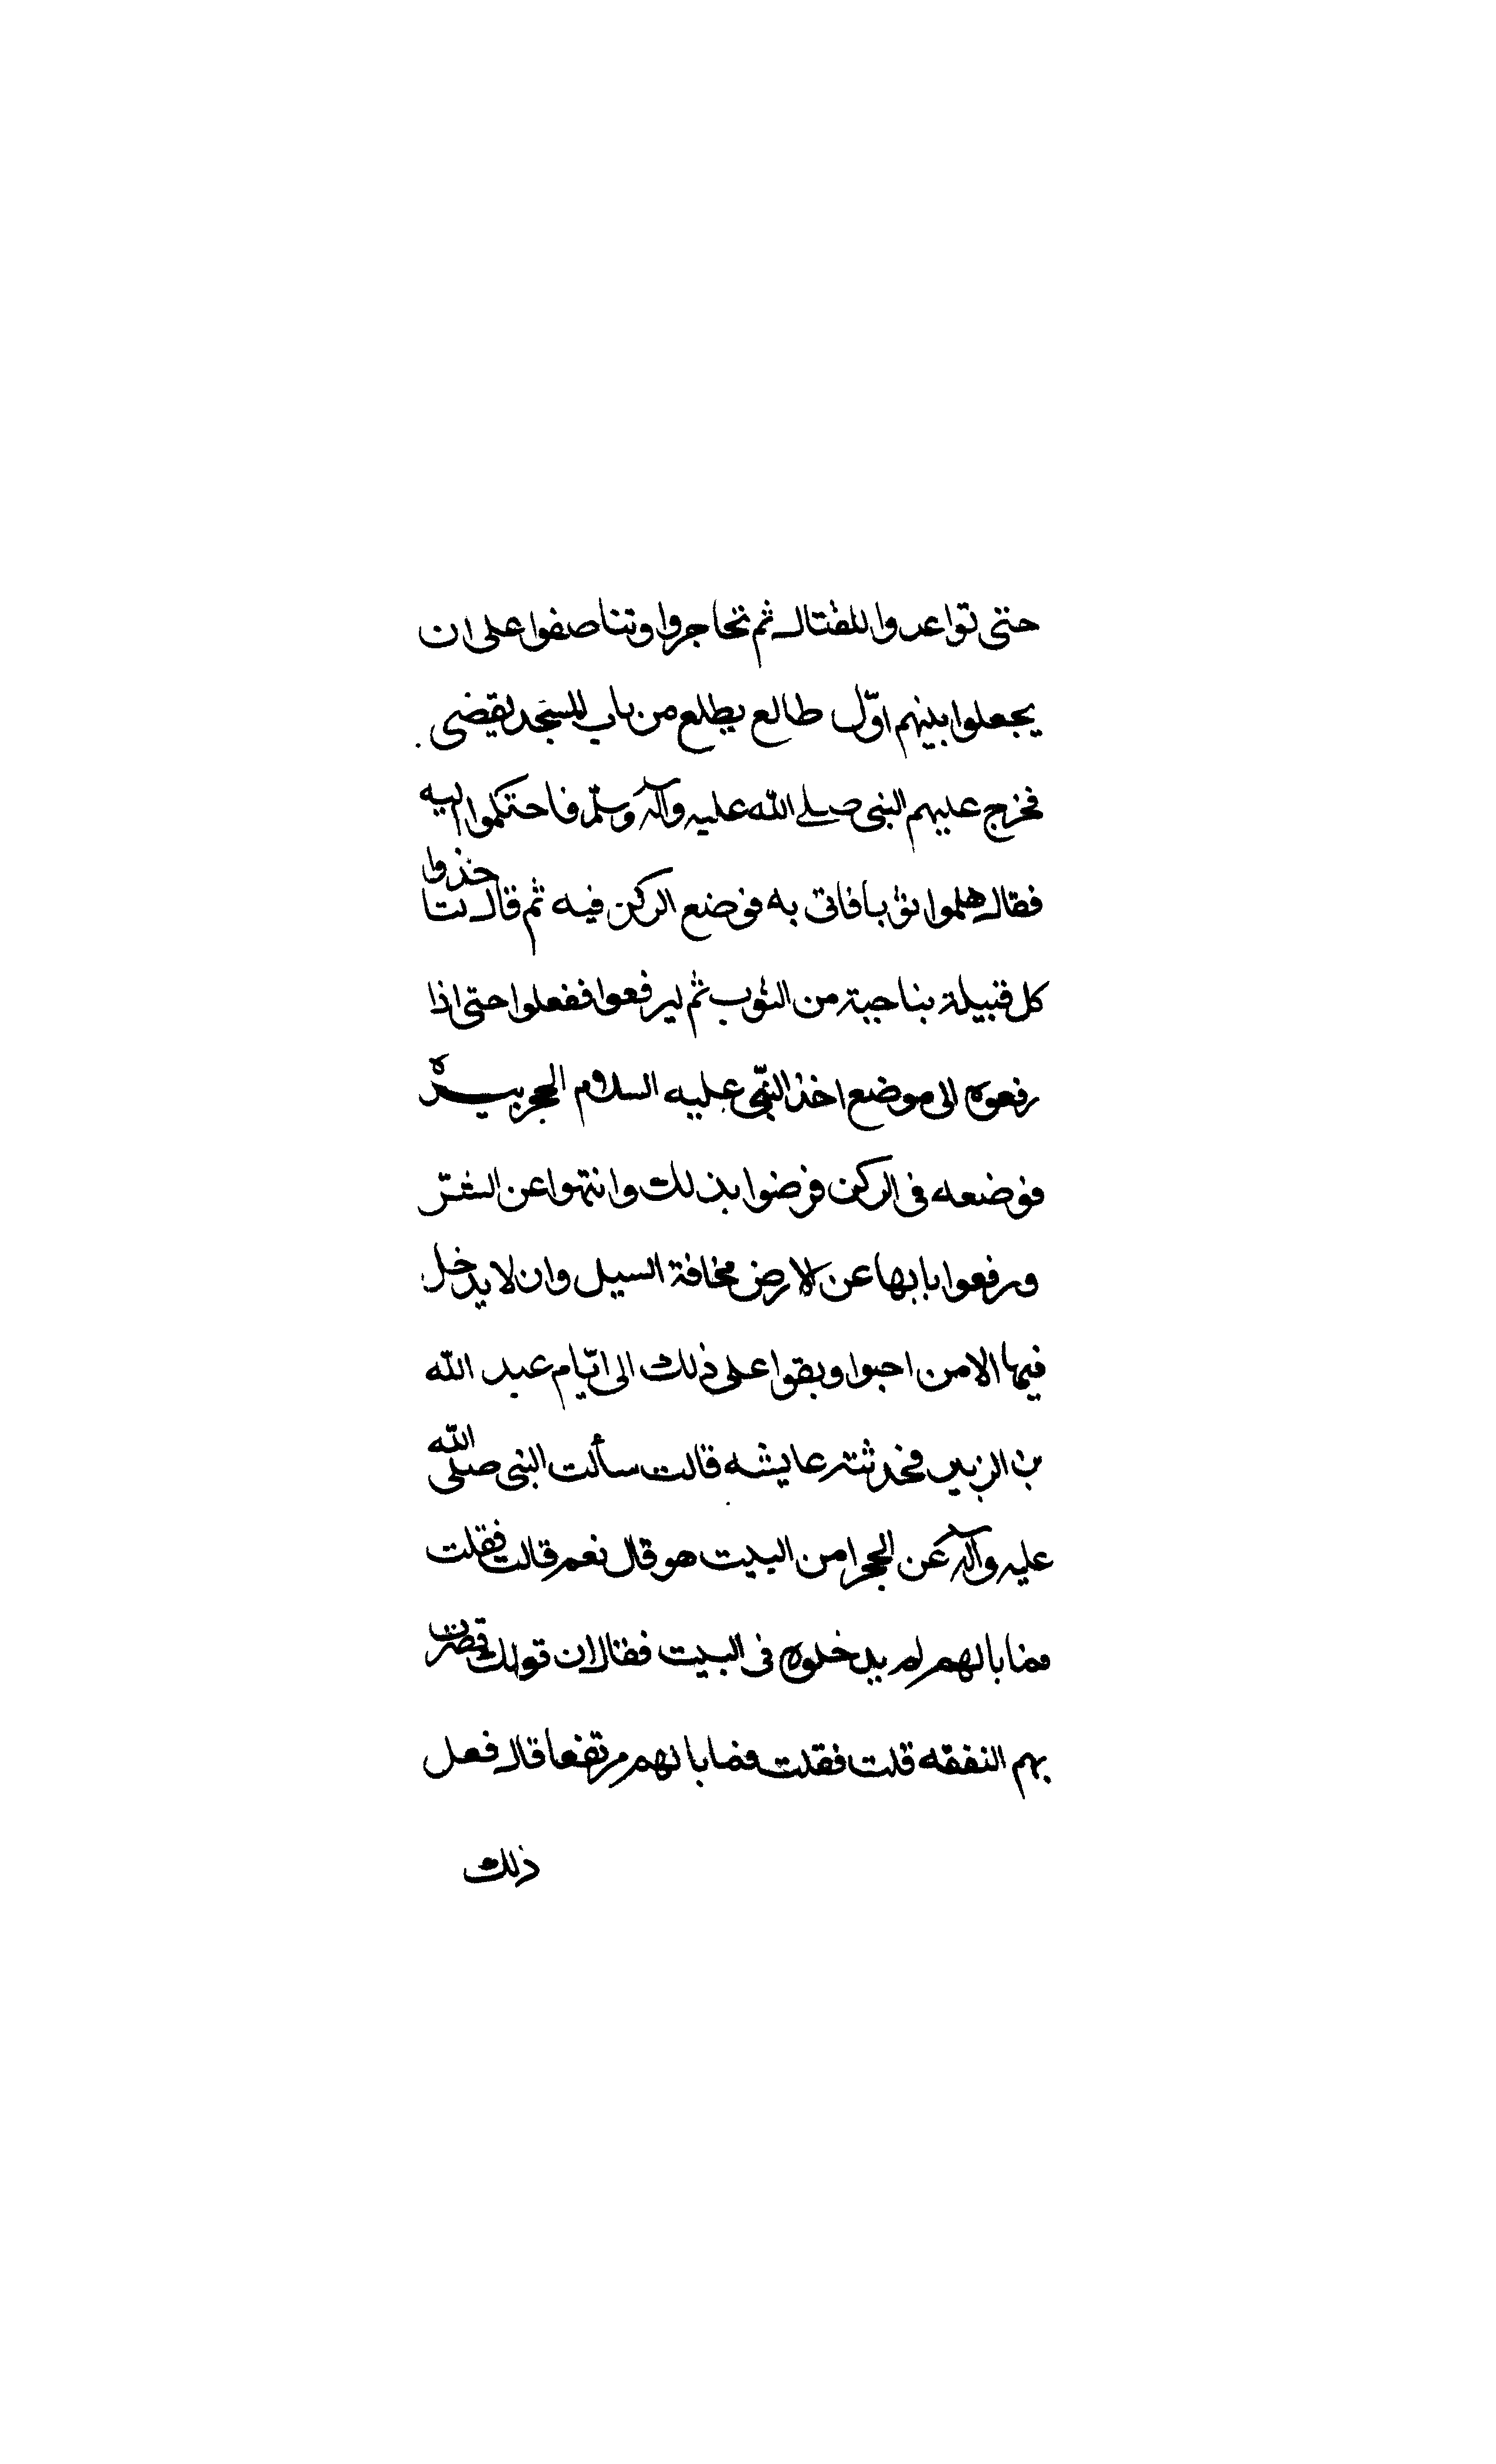 حتى تواعدوا للقتال ثم تحاجروا وتناصفوا على ان
يجعلوا بينهم اوّل طالع يطلع من باب المسجد يقضى
فخرج عليهم النبى صلى الله عليه وآله وسلّم فاحتكموا اليه
فقال هلموا ثوبا فاتى به فوضع الركن فيه ثم قال خذوا
كل قبيلة بناحية من الثوب ثم ليرفعوا ففعلوا حتى اذا
رفعوه الى موضع اخذ النبّى عليه السلام الحجر بيده
فوضعه فى الركن فرضوا بذلك وانتهوا عن الشرّ
ورفعوا بابها عن الارض مخافة السيل وان لا يدخل
فيها الا من احبوا وبقوا على ذلك الى ايّام عبد الله
بن الزبير فحدثته عايشه قالت سألت النبى صلى الله
عليه وآله عن الحجر امن البيت هو قال نعم قالت فقلت
فما بالهم لم يدخلوه فى البيت فقال ان قولك قصرت
بهم النفقه قلت فقلت فما بالهم مرتفعا قال فعل
ذلك